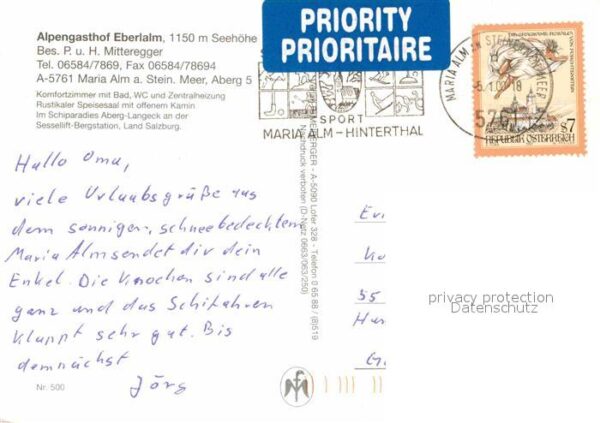 Alpengasthof Eberlalm, 1150 m Seehöhe
Bes. P. u. H. Mitteregger
Tel. 06584/7869, Fax 06584/78694
A-5761 Maria Alm a. Stein. Meer, Aberg 5
Komfortzimmer mit Bad, WC und Zentralheizung
Rustikaler Speisesaal mit offenem Kamin
Im Schiparadies Aberg-Langeck an der
Sessellift-Bergstation, Land Salzburg.
PRIORITY
PRIORITAIRE
SPORT
MARIA ALM-HINTERTHAL
MARIA ALM AM STEINERNEN MEER
5761
REPUBLIK ÖSTERREICH
S7
Hallo Oma,
viele Urlaubsgrüße aus
dem sonnigen, schneebedeckten
Maria Alm sendet dir dein
Enkel. Die Knochen sind alle
ganz und das Schifahren
klappt sehr gut. Bis
demnächst
Jörg
Nr. 500
A-5090 Lofer 328 - Telefon 0 65 88 / (8)519
Nachdruck verboten (D-Netz 0663/063/250)
55
privacy protection
Datenschutz